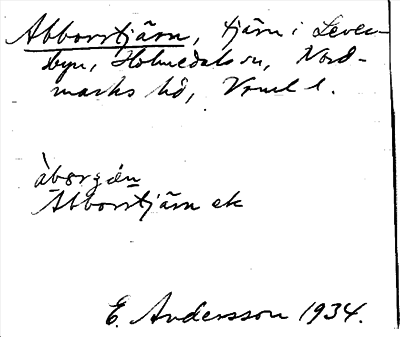 Abborrtjärn, tjärn i Leven-
byn, Holmedals sn, Nord-
marks hd, Vrml l.
àbo̧rȩn
Abborrtjärn ek
E. Andersson 1934.